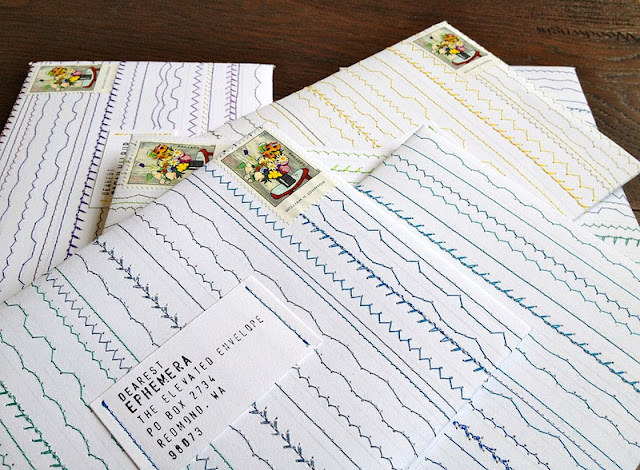 DEAREST
EPHEMERA
THE ELEVATED ENVELOPE
PO BOX 2734
REDMOND, WA
98073